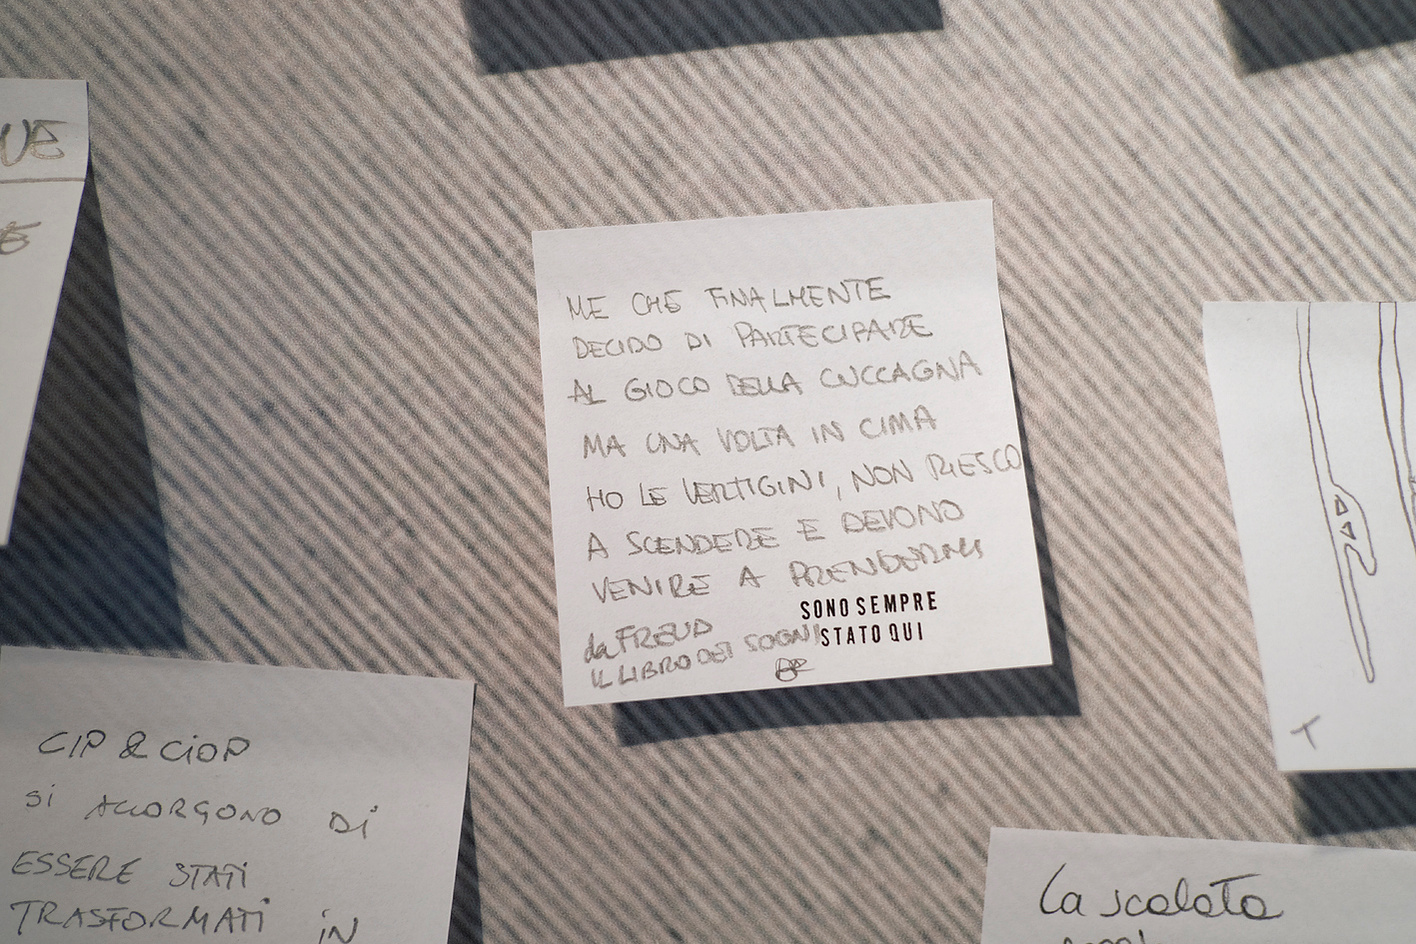 UE
E
ME CHE FINALMENTE
DECIDO DI PARTECIPARE
AL GIOCO DELLA CUCCAGNA
MA UNA VOLTA IN CIMA
HO LE VERTIGINI, NON RIESCO
A SCENDERE E DEVONO
VENIRE A PRENDERMI
SONO SEMPRE
STATO QUI
da FREUD
IL LIBRO DEI SOGNI
CIP & CiOP
Si ACCORGONO Di
ESSERE STATi
TRASFORMATi iN
La scalata